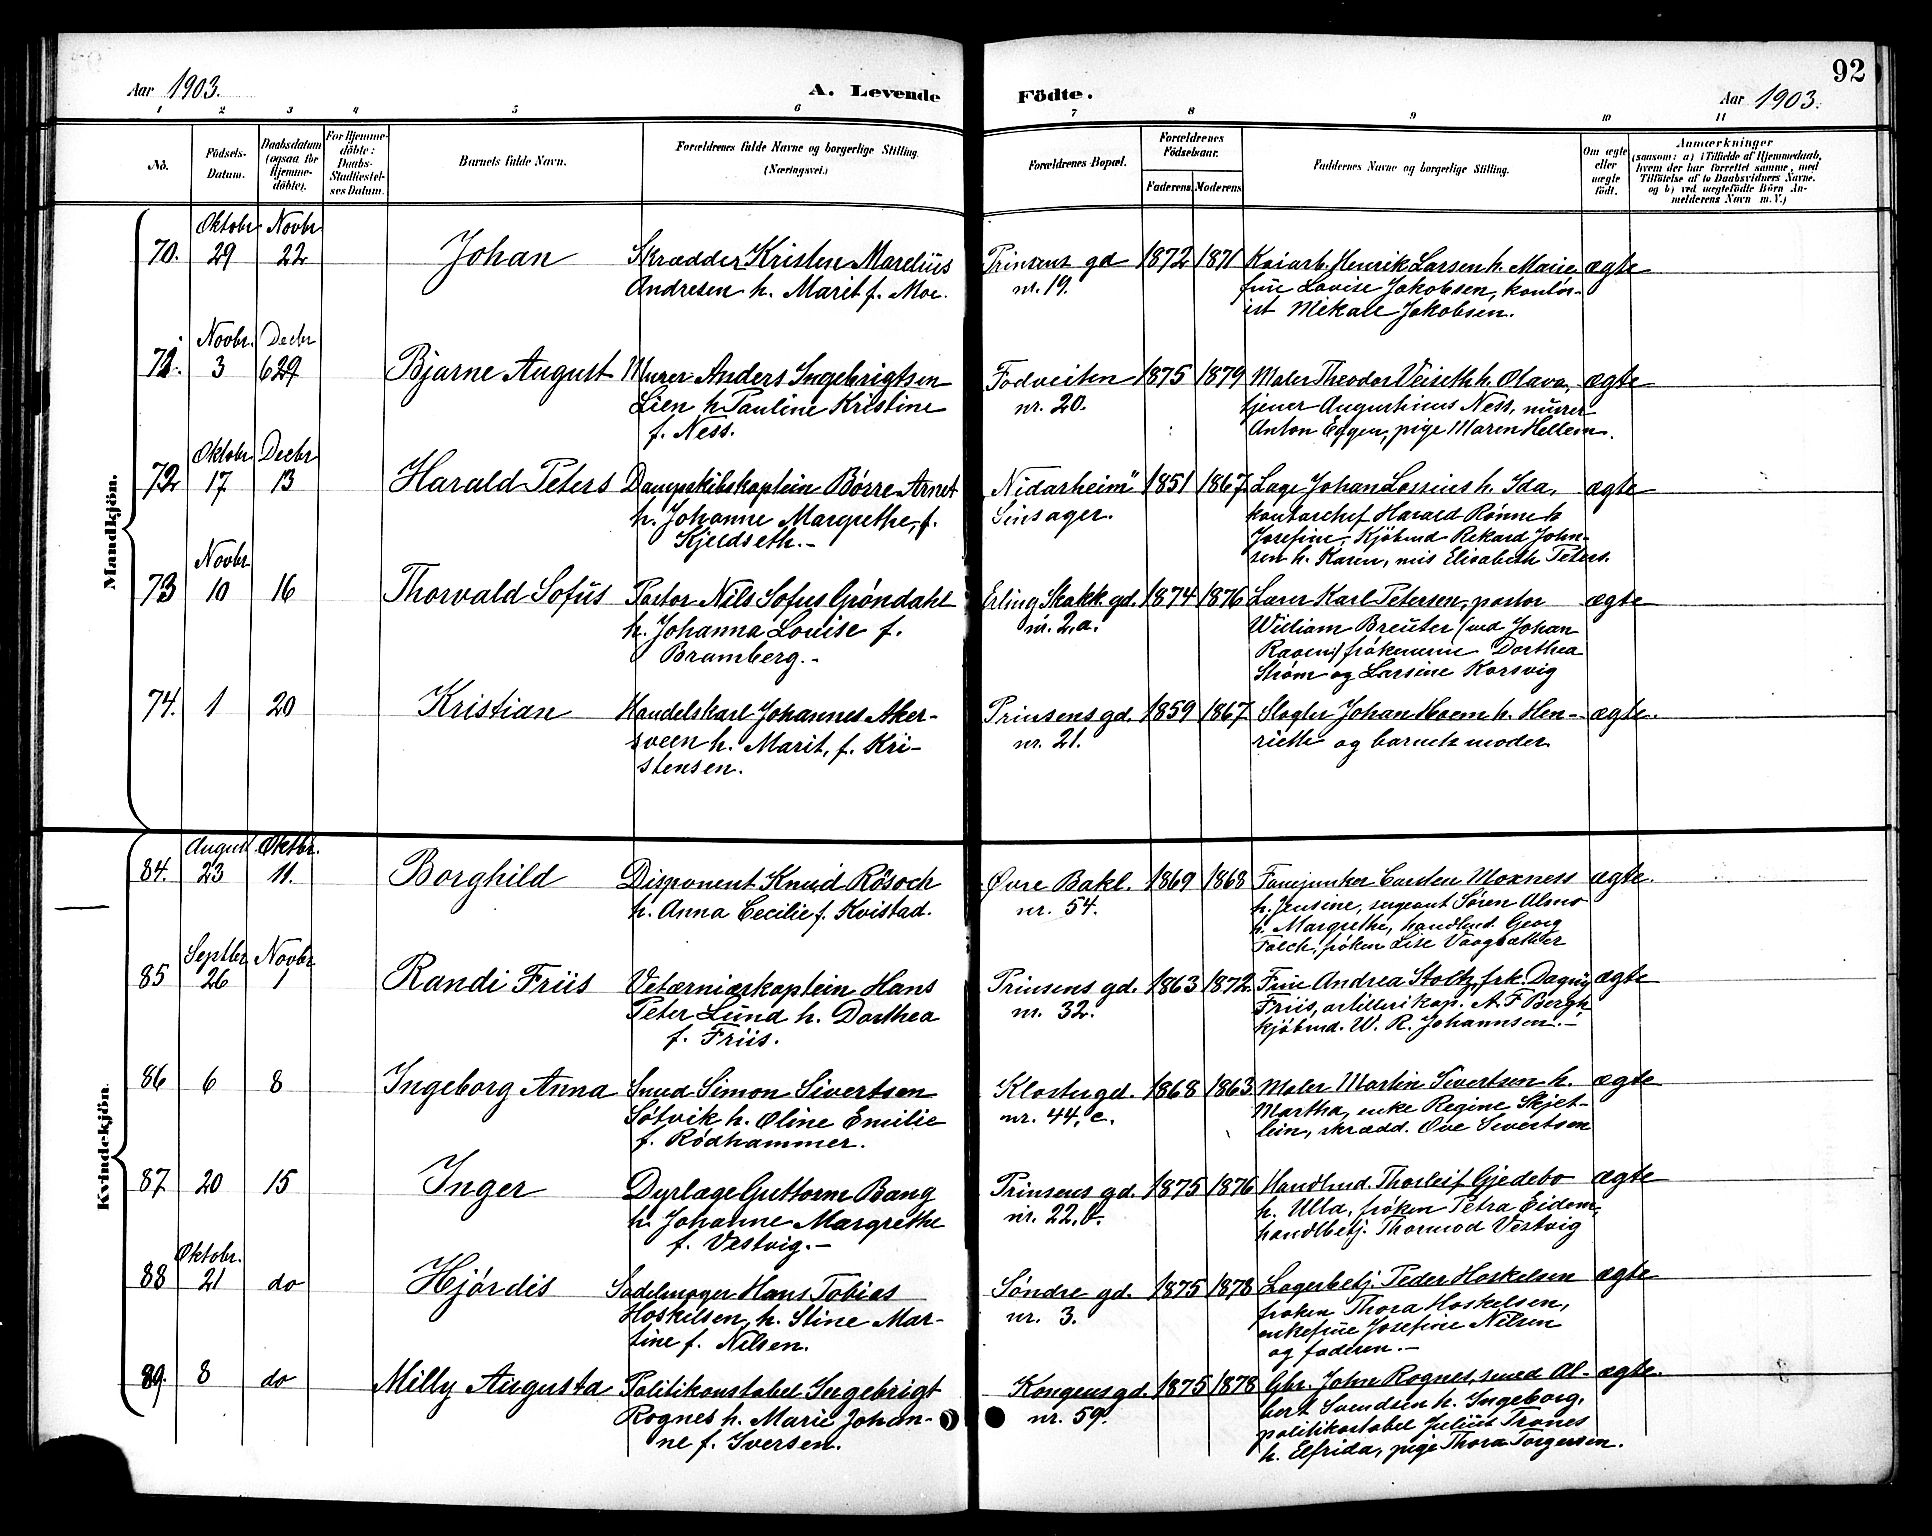 92
Aar 1903.
A. Levende Födte.
Aar 1903.
1 2 3 4 5 6 7 8 9 10 11
No.
Födsels-Datum.
Daabsdatum (ogsaa for Hjemmedöbte).
For Hjemmedöbte: Daabs-Stadfæstelses Datum.
Barnets fulde Navn.
Forældrenes fulde Navne og borgerlige Stilling.
(Næringsvei.)
Forældrenes Bopæl.
Forældrenes Födselsaar.
Faderens. Moderens.
Faddernes Navne og borgerlige Stilling.
Om ægte eller uægte födt.
Anmærkninger
(saasom: a) i Tilfælde af Hjemmedaab,
hvem der har forrettet samme, med
Tilföielse af to Daabsvidners Navne,
og b) ved uægtefödte Börn An-
melderens Navn m. V.)
Mandkjön.
Oktobr. Novbr
70. 29 22 Johan Skrædder Kristen Marelius Prinsens gd 1872 1871 Kaiarb. Henrik Larsen h. Marie ægte
Andresen h. Marit f. Moe. nr. 19. frue Lovise Jakobsen, kontor-
ist Mikael Jakobsen.
Novbr. Decbr
71. 3 6 29 Bjarne August Murer Anders Ingebrigtsen Fodveiten 1875 1879 Maler Theodor Veiseth h. Olava, ægte
Lien h. Pauline Kristine nr. 20. tjener Augustinus Ness, murer
f. Ness. Anton Eggen, pige Maren Hellem.
Oktobr Decbr
72 17 13 Harald Peters Dampskibskaptein Børre Arnet "Nidarheim" 1851 1867 Læge Johan Lossius h. Ida, ægte
h. Johanne Margrethe, f. Sinsager. kontorchef Harald Rønne h
Kjeldseth.- Josefine, Kjøbmd Rikard John-
sen h. Karen, mis Elisabeth Peters.
Novbr
73 10 16 Thorvald Sofus Pastor Nils Sofus Grøndahl Erling Skakk. gd. 1874 1876 Lærer Karl Petersen, pastor ægte
h. Johanna Louise f. nr. 2,a. William Breuter (ved Johan
Bramberg.- Raven) frøknerne Dorthea
Strøm og Larsine Korsvig
74. 1 20 Kristian Handelskarl Johannes Aker- Prinsens gd. 1859 1867 Slagter Johan Hoem h. Hen- ægte.
sveen h. Marit, f. Kri- nr. 21. riette og barnets moder
stensen.
Kvindekjön.
August Oktbr.
84. 23 11. Borghild Disponent Knud Røsoch Øvre Bakl. 1869 1868 Fanejunker Carsten Moxness ægte.
h. Anna Cecilie f. Kvistad. nr. 54. h. Jensine, sergeant Søren Almo
h. Margrethe, handlend. Georg
Falch, frøken Lise
Septbr Novbr
85 26 1 Randi Friis Veterniærkaptein Hans Prinsens gd. 1863 1872. Frue Andrea Stoltz, frk. Dagny ægte
Peter Lund h. Dorthea nr. 32. Friis, artillerikap. A. F Bergh
f. Friis. kjøbmd. W. R. Johannsen.-
86 6 8 Ingeborg Anna Smed Simon Sivertsen Klostergd. 1868 1863 Maler Martin Sivertsen h. ægte
Solvik h. Oline Emilie nr. 44, c. Martha, enke Regine Skjet-
f. Rødhammer. lein, skrædd. Ove Sivertsen
87 20 15 Inger Dyrlæge Guttorm Bang Prinsens gd. 1875 1876 Handlnd. Thorleif Gjedebo ægte
h. Johanne Margrethe nr. 22, b. h. Ulla, frøken Petra Eidem,
f. Vestvig.- handlbetj. Thormod Vestvig
Oktobr.
88 21 do Hjördis Sadelmager Hans Tobias Søndre gd. 1875 1878 Lagerbetj. Peder Hoskelsen ægte
Hoskelsen, h. Stine Mar- nr. 3. frøken Thora Hoskelsen,
tine f. Nilsen. enkefrue Josefine Nilsen
og faderen.-
89. 8 do Milly Augusta Politikonstabel Ingebrigt Kongens gd. 1875 1878 Gbr. John Rognes, smed Al- ægte.
Rognes h. Marie Johan- nr. 59. bert Svendsen h. Ingeborg,
ne f. Iversen. politikostabel Julius Trones
h. Elfrida, pige Thora Torgersen.